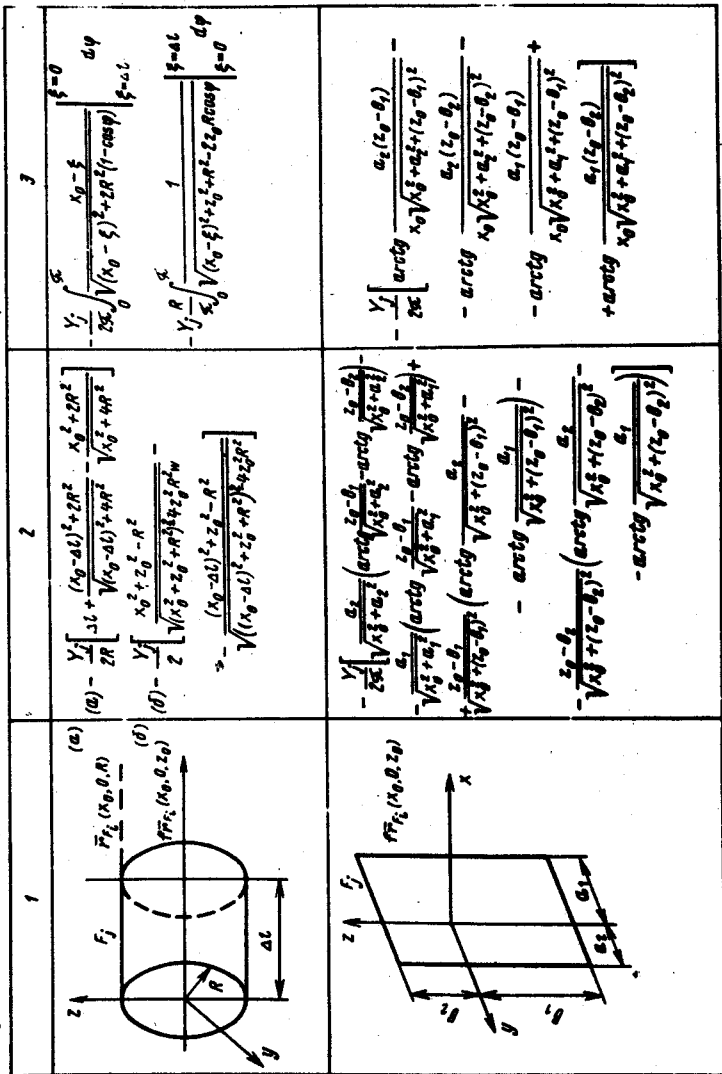 1
2
3
z
F_j
r̄_{F_i}(x_0,0,R)
(а)
(б)
r̄_{F_i}(x_0,0,z_0)
R
Δl
y
(а) - Y_j/2R [Δl + ((x_0-Δl)^2+2R^2)/√((x_0-Δl)^2+4R^2) - (x_0^2+2R^2)/√(x_0^2+4R^2)]
(б) - Y_j/2 [(x_0^2+z_0^2-R^2)/√((x_0^2+z_0^2+R^2)^2-4z_0^2R^2) -
- ((x_0-Δl)^2+z_0^2-R^2)/√(((x_0-Δl)^2+z_0^2+R^2)^2-4z_0^2R^2)]
- Y_j/2π ∫_0^π (x_0-ξ)/√((x_0-ξ)^2+2R^2(1-cosφ)) |_{ξ=Δl}^{ξ=0} dφ
- Y_j R/π ∫_0^π 1/√((x_0-ξ)^2+z_0^2+R^2-2z_0Rcosφ) |_{ξ=0}^{ξ=Δl} dφ
z
F_j
r̄_{F_i}(x_0,0,z_0)
x
y
в_2
в_1
a_2
a_1
- Y_j/2π [a_2/√(x_0^2+a_2^2) (arctg (z_0-в_1)/√(x_0^2+a_2^2) - arctg (z_0-в_2)/√(x_0^2+a_2^2)) -
- a_1/√(x_0^2+a_1^2) (arctg (z_0-в_1)/√(x_0^2+a_1^2) - arctg (z_0-в_2)/√(x_0^2+a_1^2)) +
+ (z_0-в_1)/√(x_0^2+(z_0-в_1)^2) (arctg a_2/√(x_0^2+(z_0-в_1)^2) -
- arctg a_1/√(x_0^2+(z_0-в_1)^2)) -
- (z_0-в_2)/√(x_0^2+(z_0-в_2)^2) (arctg a_2/√(x_0^2+(z_0-в_2)^2) -
- arctg a_1/√(x_0^2+(z_0-в_2)^2))]
- Y_j/2π [arctg a_2(z_0-в_1)/x_0√(x_0^2+a_2^2+(z_0-в_1)^2) -
- arctg a_2(z_0-в_2)/x_0√(x_0^2+a_2^2+(z_0-в_2)^2) -
- arctg a_1(z_0-в_1)/x_0√(x_0^2+a_1^2+(z_0-в_1)^2) +
+ arctg a_1(z_0-в_2)/x_0√(x_0^2+a_1^2+(z_0-в_2)^2)]